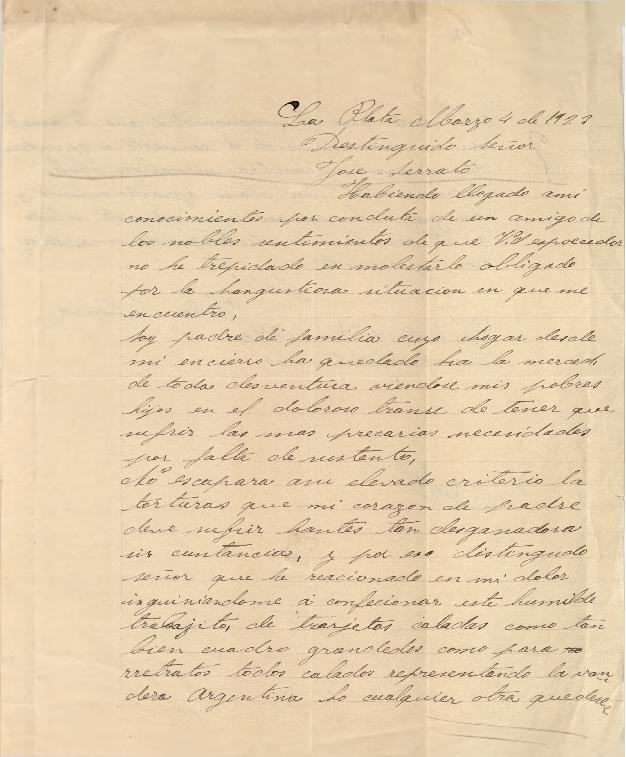 La Plata Marzo 4 de 1923
Destinguido señor
Jose Serrato
Habiendo llegado ami
conocimientos por conduta de un amigo de
los nobles sentimientos de que Vd espoeedor
no he trepidado en molestirlo obligado
por la hangustiosa situacion en que me
encuentro,
soy padre de familia cuyo hogar desde
mi encierro ha quedado ha la merced,
de toda desventura viendose mis pobres
hijos en el doloroso transe de tener que
sufrir las mas precarias necesidades
por falta de sustento,
No escapara asu elevado criterio la
torturas que mi corazon de padre
deve sufrir hantes tan desganadora
sir cuntancia, y por eso distingudo
señor que he reacionado en mi dolor
inguiniandome á confecionar este humilde
trabajito, de tarjetas caladas como tan
bien cuadro grandedes como para
rretratos todos calados representendo la van
dera Argentina ho cualquier otra quedesee